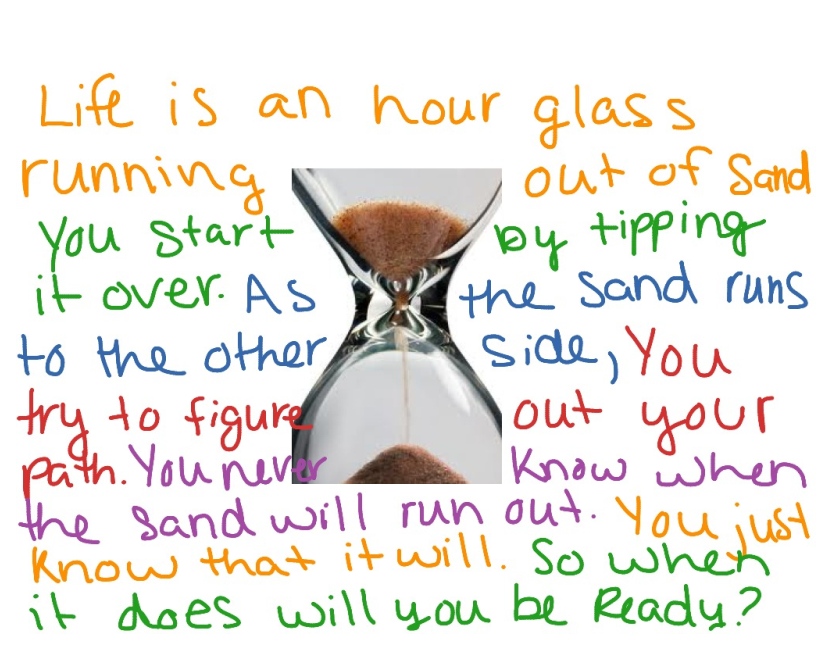 Life is an hour glass
running out of Sand
You start by tipping
it over. As the sand runs
to the other side, You
try to figure out your
path. You never know when
the sand will run out. You just
know that it will. So when
it does will you be Ready?